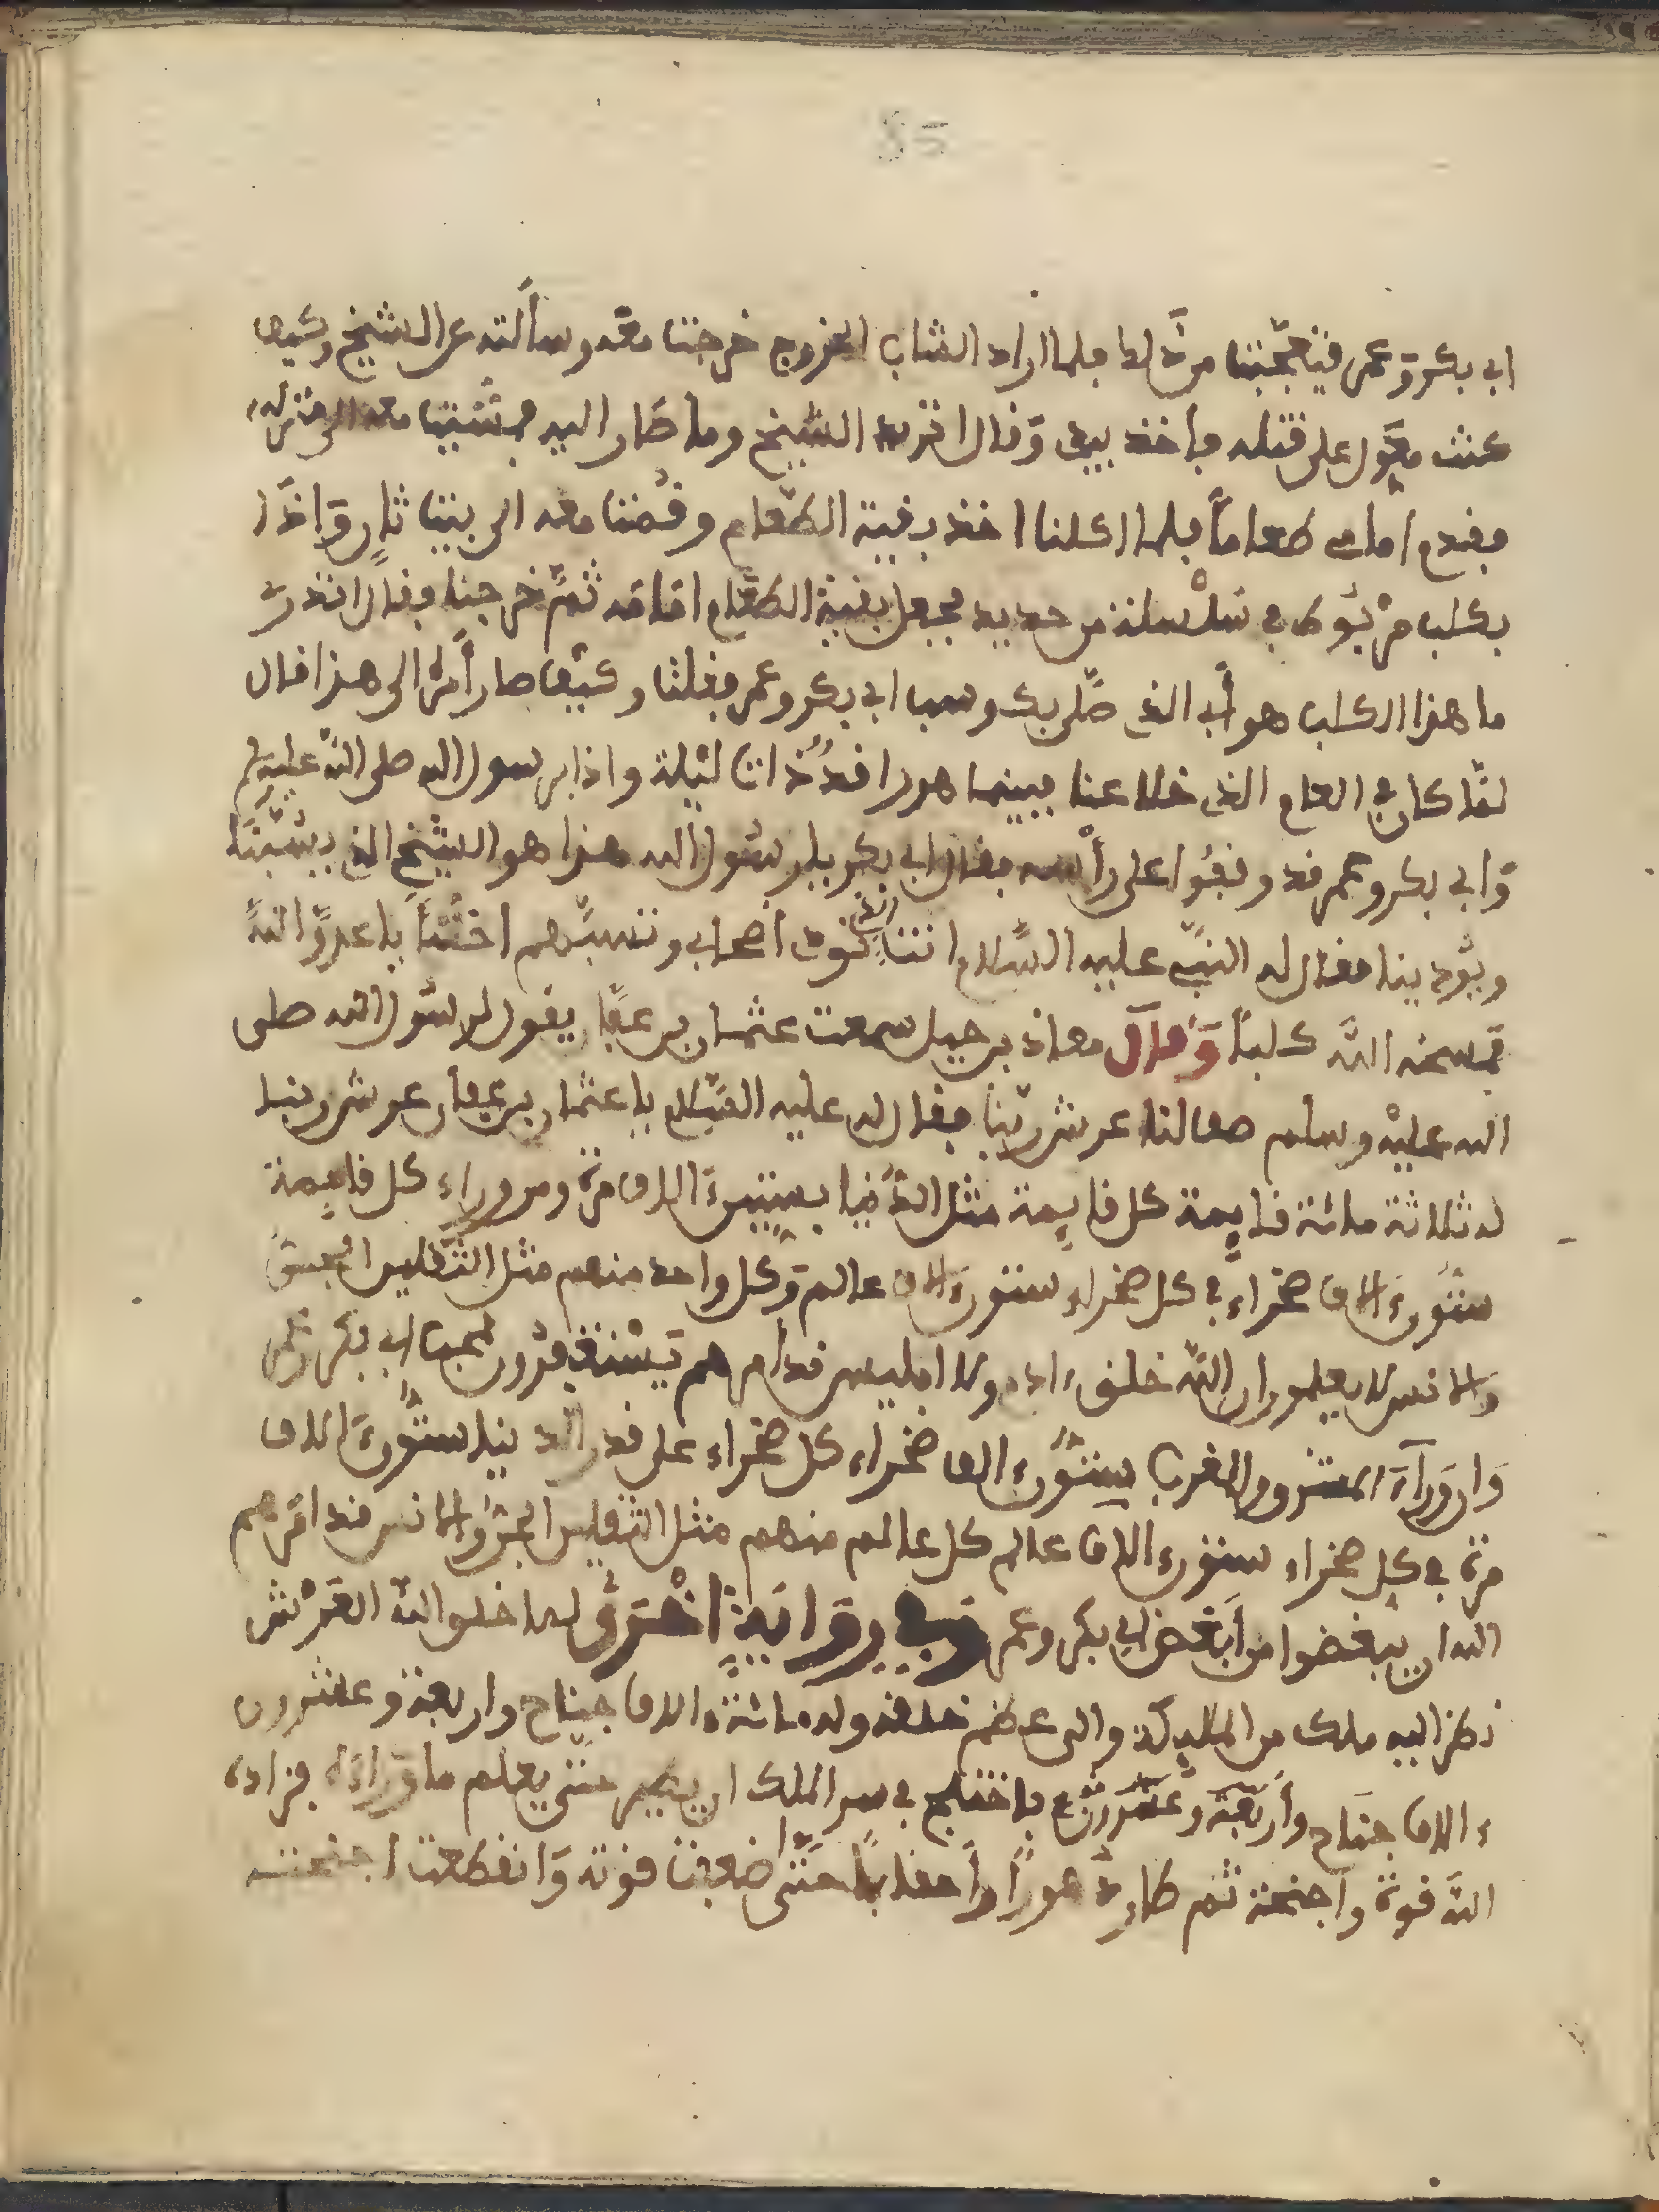 85
ابي بكر وعمر فتعجبنا من ذلك فلما اراد الشاب الخروج خرجنا معه وسالته عن الشيخ وكيف
كنت معول على قتله فاخذ بيدي وقال اتريد الشيخ وما صار اليه فمشينا معه الى منزله
فقدم امامي طعاما فلما اكلنا اخذ بقية الطعام وقمنا معه الى بيتنا ثان واذا
بكلب مربوط في سلسلة من حديد فجعل بقية الطعام امامه ثم خرجنا فقال اتدري
ما هذا الكلب هو أبي الذي صلى بك وسب ابي بكر وعمر فقلنا وكيف صار أمره الى هذا قال
لما كان في العام الذي خلا عنا فبينما هو راقد ذات ليلة واذا برسول الله صلى الله عليه وسلم
وابي بكر وعمر قد وقفوا على رأسه فقال ابي بكر يا رسول الله هذا هو الشيخ الذي يسبنا
ويؤدينا فقال له النبي عليه السلام انت الذي تؤذي اصحابي وتسبهم اخسأ يا عدو الله
فمسخه الله كلبا وقال معاذ بن جبل سمعت عثمان بن عفان يقول لرسول الله صلى
الله عليه وسلم صف لنا عرش ربنا فقال له عليه السلام يا عثمان بن عفان عرش ربنا
له ثلاثة مائة قايمة كل قايمة مثل الدنيا بستين ءالاف مرة ومن وراء كل قايمة
ستون ءالاف صخراء في كل صخراء ستون ءالاف عالم وكل واحد منهم مثل الثقلين الجن
والانس لا يعلمون ان الله خلق ءادم ولا ابليس قد أمرهم يستغفرون لمحب ابي بكر وعمر
وان وراء المشرق والمغرب ستون الف صخراء كل صخراء على قدر الدنيا ستون ءالاف
مرة في كل صخراء ستون ءالاف عالم كل عالم منهم مثل الثقلين الجن والانس قد امرهم
الله ان يبغضوا من ابغض ابي بكر وعمر وفي رواية اخرى لما خلق الله العرش
نظر اليه ملك من الملايكة والى عظم خلقه وله مائة ءالاف جناح واربعة وعشرون
ءالاف جناح وأربعة وعشرون فاختلج في سر الملك ان يطير حتى يعلم ما وراءه فزاده
الله قوة واجنحة ثم طار دهورا وأحقابا حتى ضعفت قوته وانقطعت اجنحته